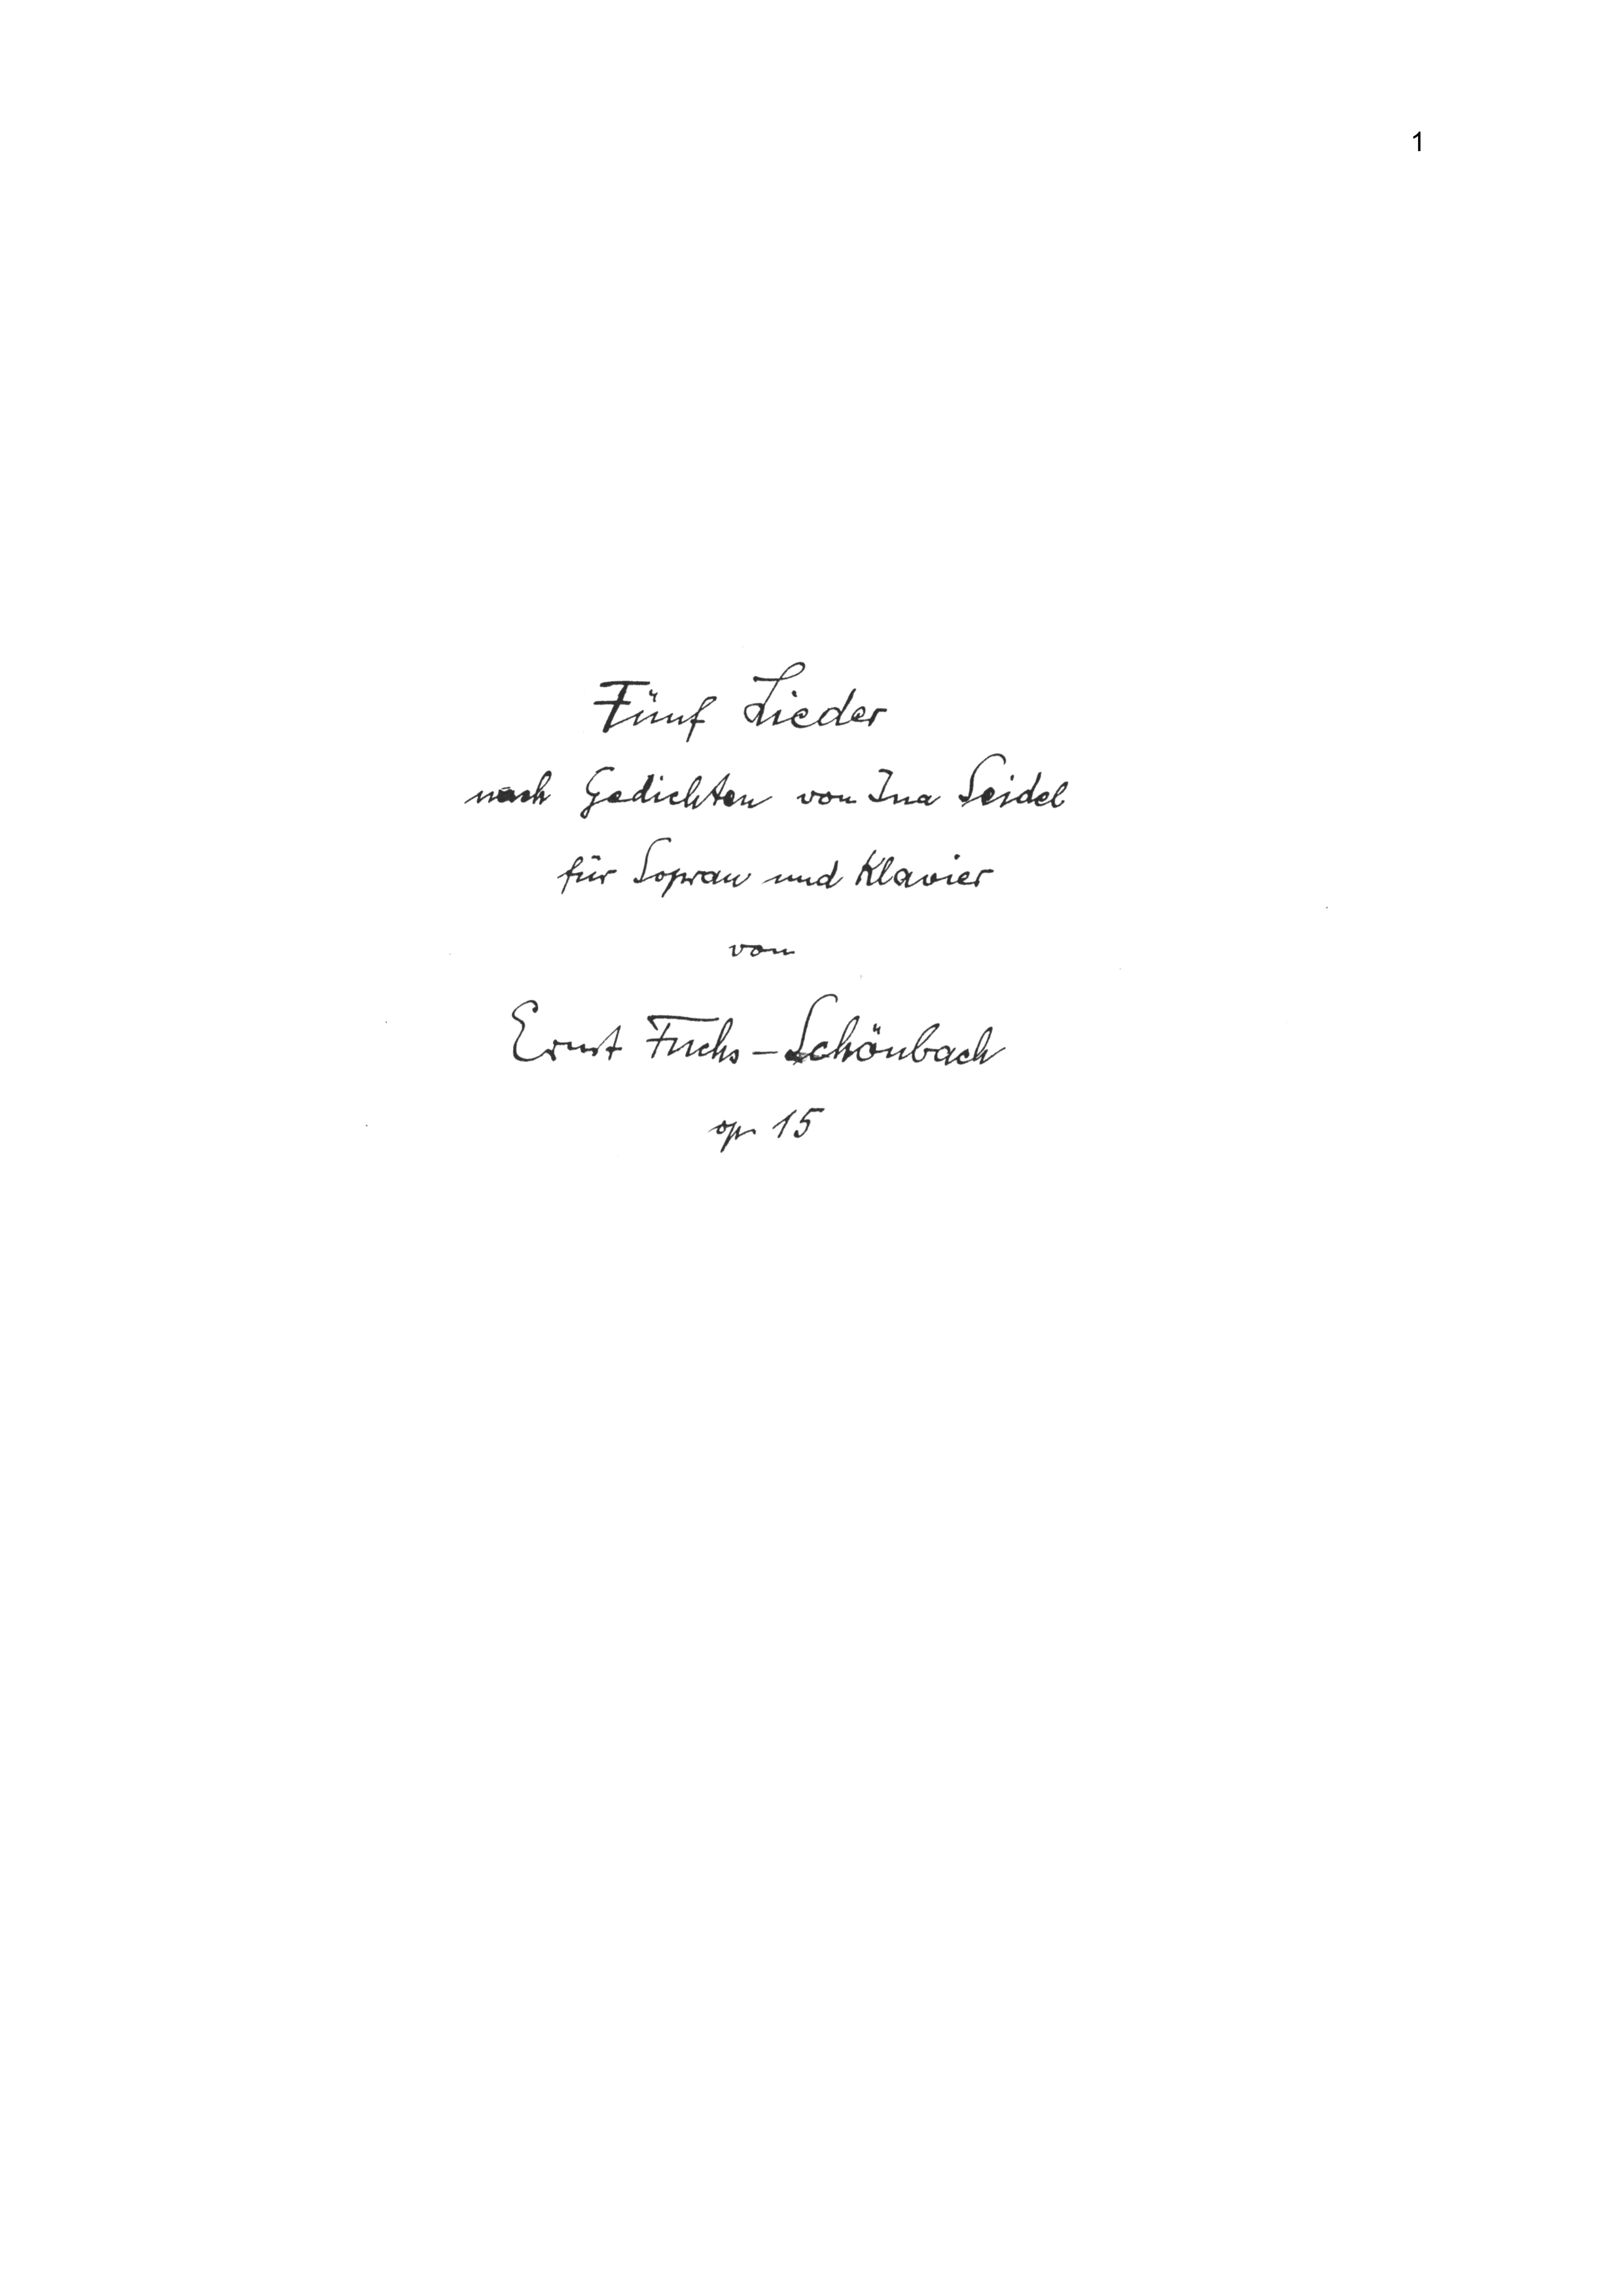 1
Fünf Lieder
nach Gedichten von Ina Seidel
für Sopran und Klavier
von
Ernst Fuchs-Schönbach
op. 15